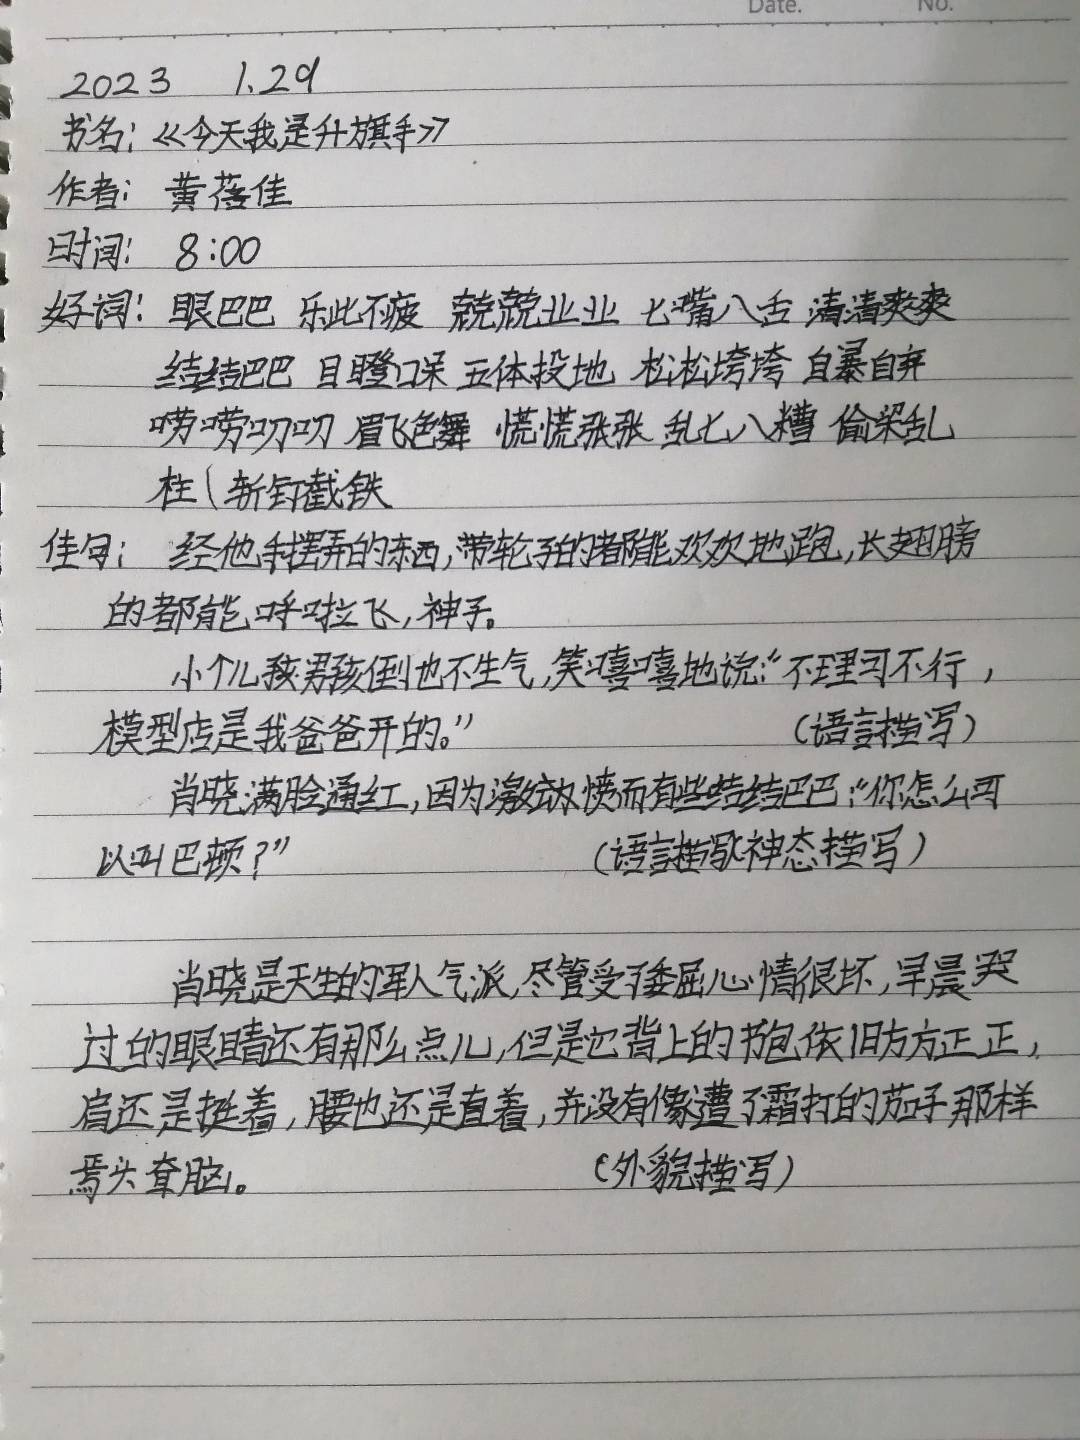 Date. No.
2023 1.29
书名:《今天我是升旗手》
作者: 黄蓓佳
时间: 8:00
好词: 眼巴巴 乐此不疲 兢兢业业 七嘴八舌 清清爽爽
结结巴巴 目瞪口呆 五体投地 松松垮垮 自暴自弃
唠唠叨叨 眉飞色舞 慌慌张张 乱七八糟 偷梁乱
柱(斩钉截铁
佳句: 经他手摆弄的东西,带轮子的都能欢欢地跑,长翅膀
的都能呼啦飞,神子。
小个儿孩男孩倒也不生气,笑嘻嘻地说:“不理习不行,
模型店是我爸爸开的。” (语言描写)
肖晓满脸通红,因为激动愤而有些结结巴巴:“你怎么可
以叫巴顿?” (语言描写神态描写)
肖晓是天生的军人气派,尽管受了委屈心情很坏,早晨哭
过的眼睛还有那么点儿,但是它背上的书包依旧方方正正,
肩还是挺着,腰也还是直着,并没有像遭了霜打的茄子那样
焉头耷脑。 (外貌描写)